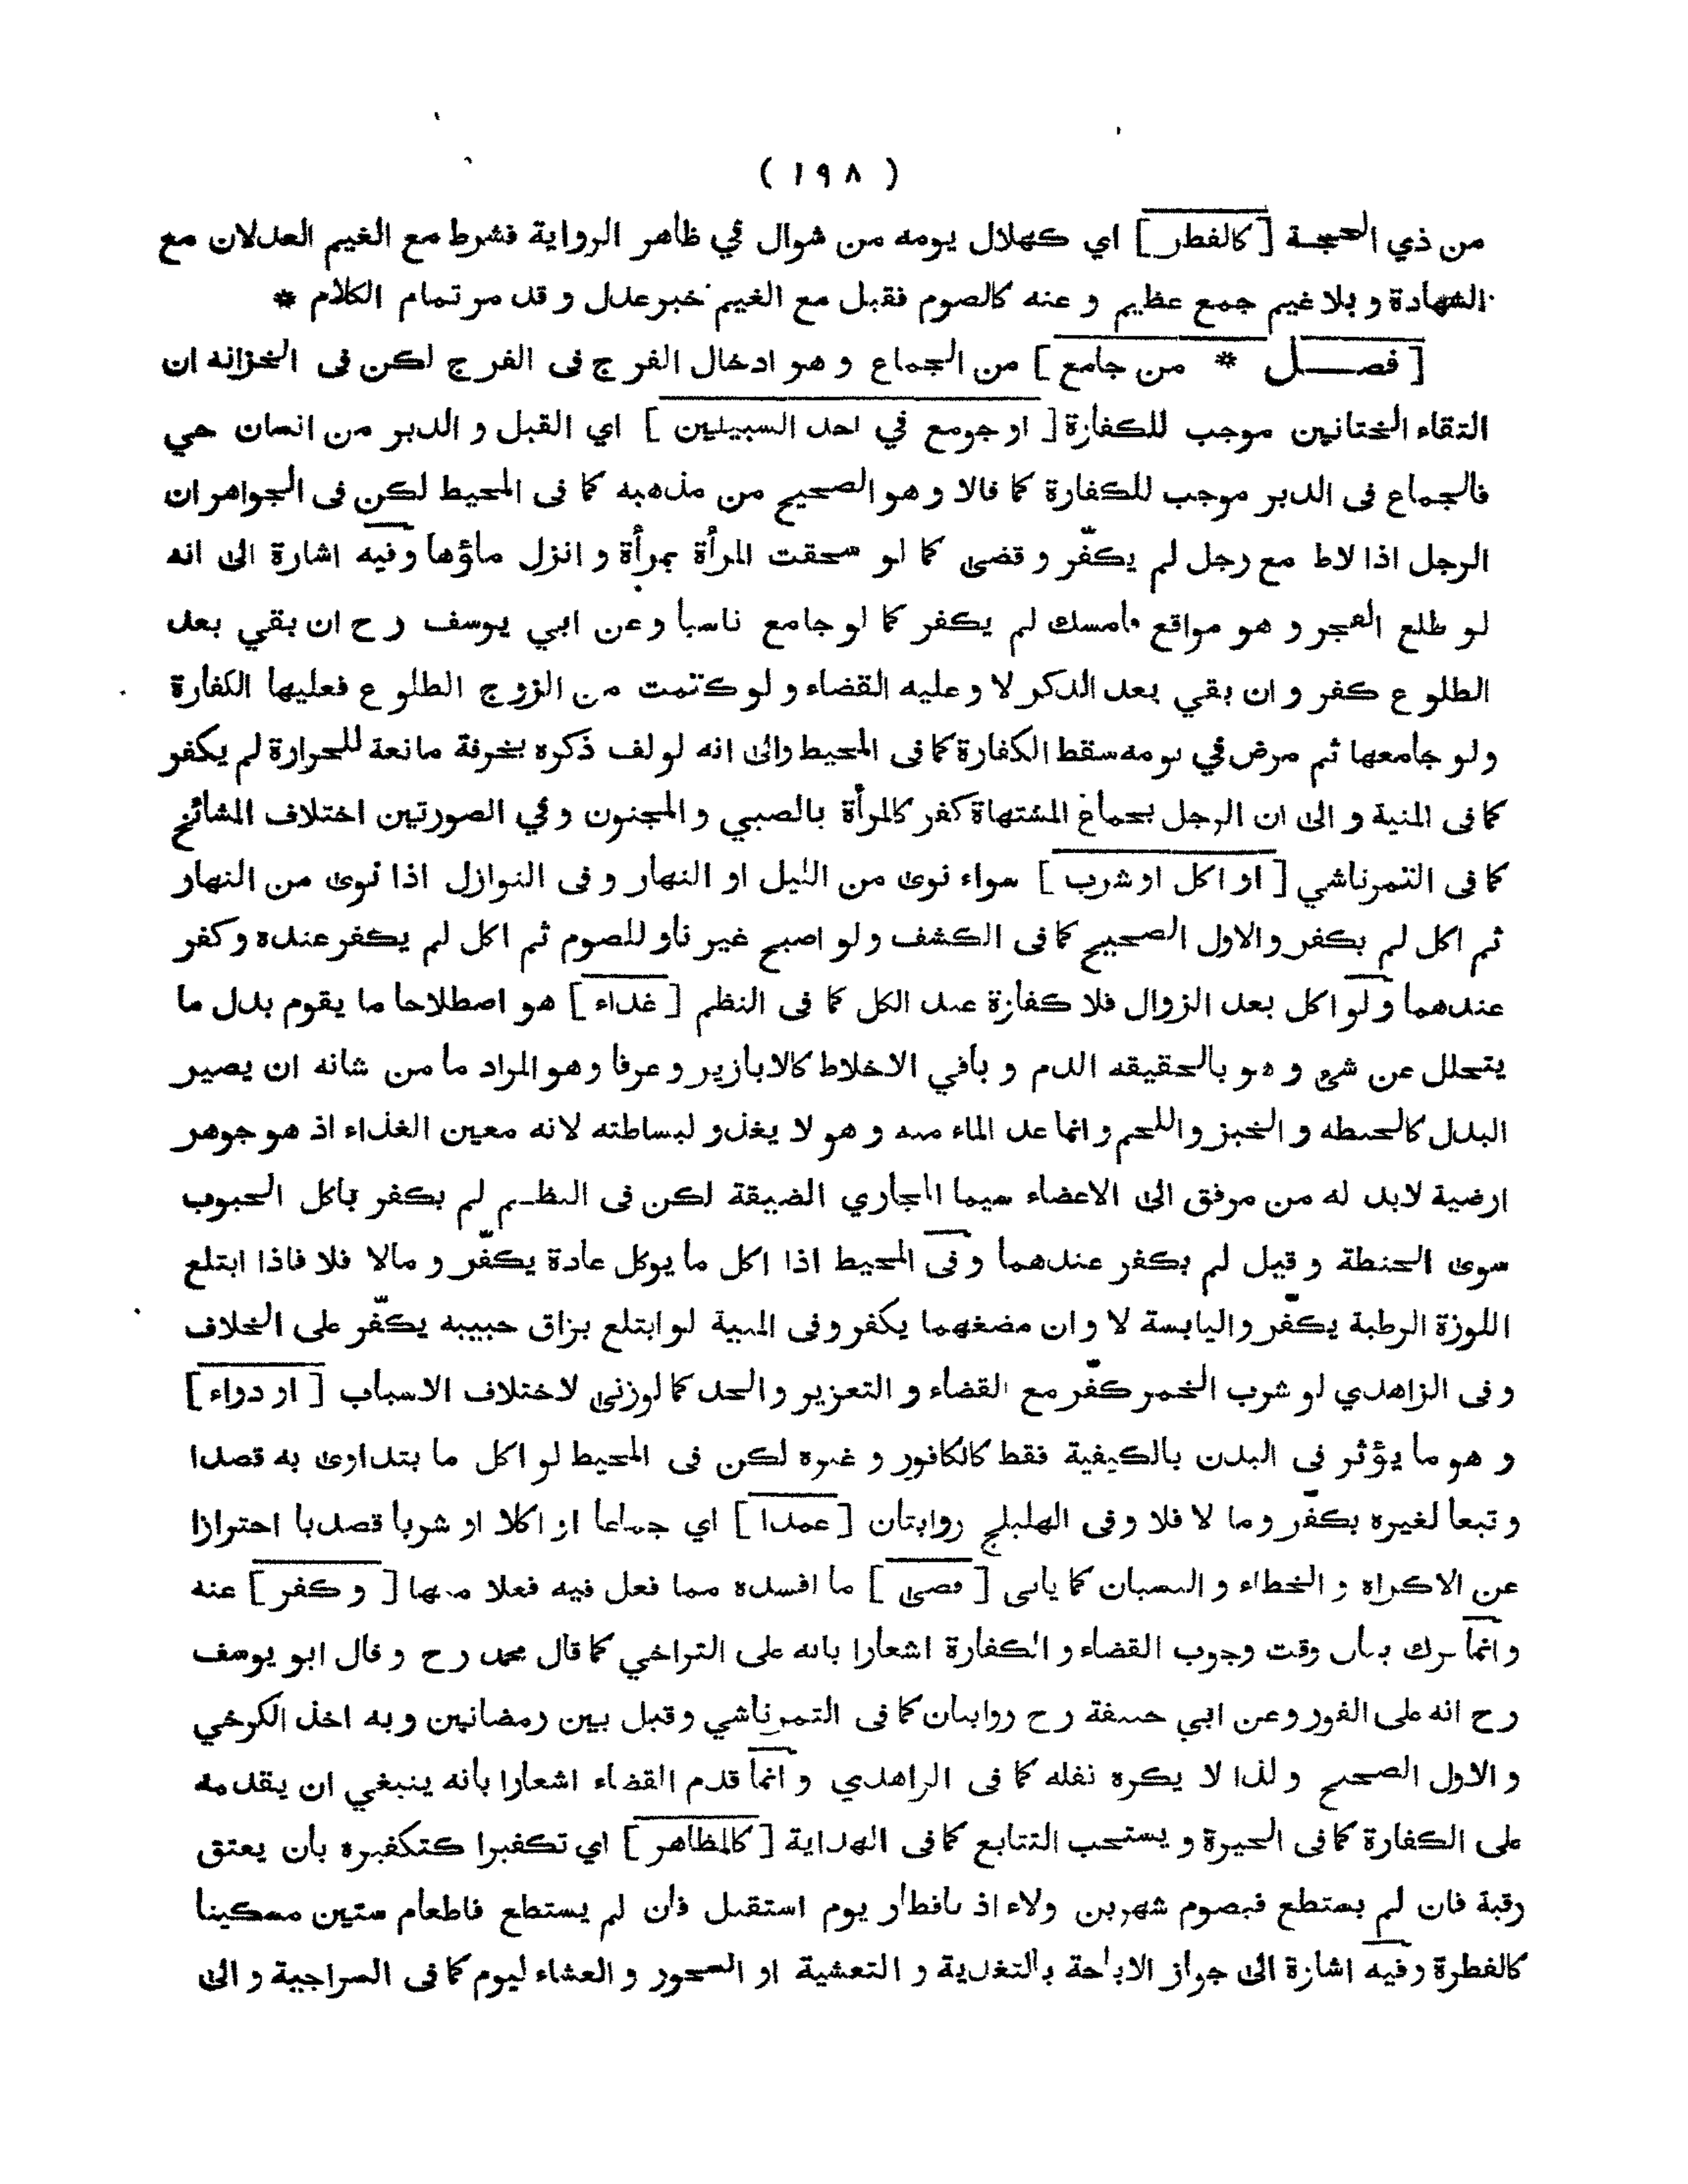 ( ١٩٨ )
من ذي الحجة [كالفطر] اي كهلال يومه من شوال في ظاهر الرواية فشرط مع الغيم العدلان مع
الشهادة و بلا غيم جمع عظيم و عنه كالصوم فقبل مع الغيم خبر عدل و قد مر تمام الكلام *
[ فصــــل * من جامع ] من الجماع و هو ادخال الفرج فى الفرج لكن فى الخزانه ان
التقاء الختانين موجب للكفارة [ او جومع في احد السبيلين ] اي القبل و الدبر من انسان حي
فالجماع فى الدبر موجب للكفارة كما قالا و هو الصحيح من مذهبه كما فى المحيط لكن فى الجواهر ان
الرجل اذا لاط مع رجل لم يكفّر و قضى كما لو سحقت المرأة بمرأة و انزل ماؤها وفيه اشارة الى انه
لو طلع الفجر و هو مواقع فامسك لم يكفر كما لو جامع ناسيا و عن ابي يوسف رح ان بقي بعد
الطلوع كفر و ان بقي بعد الذكر لا و عليه القضاء و لو كتمت من الزوج الطلوع فعليها الكفارة
ولو جامعها ثم مرض في يومه سقط الكفارة كما فى المحيط والى انه لو لف ذكره بخرقة مانعة للحرارة لم يكفر
كما فى المنية و الى ان الرجل بجماع المشتهاة كفر كالمرأة بالصبي و المجنون و في الصورتين اختلاف المشائخ
كما فى التمرتاشي [ او اكل او شرب ] سواء نوى من الليل او النهار و فى النوازل اذا نوى من النهار
ثم اكل لم يكفر والاول الصحيح كما فى الكشف و لو اصبح غير ناو للصوم ثم اكل لم يكفر عنده و كفر
عندهما ولو اكل بعد الزوال فلا كفارة عند الكل كما فى النظم [ غذاء ] هو اصطلاحا ما يقوم بدل ما
يتحلل عن شئ و هو بالحقيقه الدم و باقي الاخلاط كالابازير و عرفا و هو المراد ما من شانه ان يصير
البدل كالحنطه و الخبز و اللحم و انما عد الماء منه و هو لا يغذو لبساطته لانه معين الغذاء اذ هو جوهر
ارضية لابد له من موفق الى الاعضاء سيما المجاري الضيقة لكن فى النظـم لم يكفر باكل الحبوب
سوى الحنطة و قيل لم يكفر عندهما و فى المحيط اذا اكل ما يوكل عادة يكفّر و مالا فلا فاذا ابتلع
اللوزة الرطبة يكفّر واليابسة لا و ان مضغهما يكفر وفى المنية لو ابتلع بزاق حبيبه يكفّر على الخلاف
و فى الزاهدي لو شرب الخمر كفّر مع القضاء و التعزير و الحد كما لوزنى لاختلاف الاسباب [ او دواء ]
و هو ما يؤثر فى البدن بالكيفية فقط كالكافور و غيره لكن فى المحيط لو اكل ما يتداوى به قصدا
و تبعا لغيره يكفّر وما لا فلا و فى الهليلج روايتان [ عمدا ] اي جماعا او اكلا او شربا قصديا احترازا
عن الاكراه و الخطاء و النسيان كما ياتى [ قضى ] ما افسده مما فعل فيه فعلا منها [ و كفر ] عنه
و انما ترك بيان وقت وجوب القضاء و الكفارة اشعارا بانه على التراخي كما قال محمد رح و قال ابو يوسف
رح انه على الفور و عن ابي حنيفة رح روايتان كما فى التمرتاشي و قيل بين رمضانين و به اخذ الكرخي
و الاول الصحيح و لذا لا يكره نفله كما فى الزاهدي و انما قدم القضاء اشعارا بأنه ينبغي ان يقدمه
على الكفارة كما فى الحيرة و يستحب التتابع كما فى الهداية [ كالمظاهر ] اي تكفيرا كتكفيره بأن يعتق
رقبة فان لم يستطع فيصوم شهرين ولاء اذ بافطار يوم استقبل فان لم يستطع فاطعام ستين مسكينا
كالفطرة و فيه اشارة الى جواز الاباحة بالتغدية و التعشية او السحور و العشاء ليوم كما فى السراجية و الى